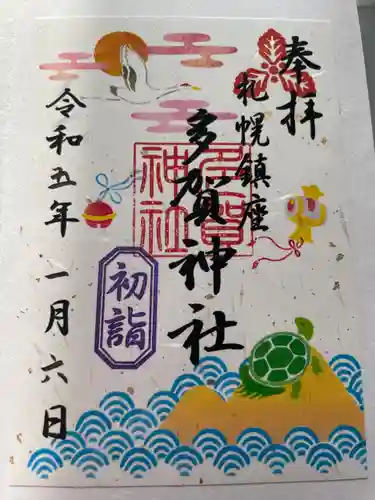 奉拝
札幌鎮座
多賀神社
多賀
神社
初詣
令和五年一月六日